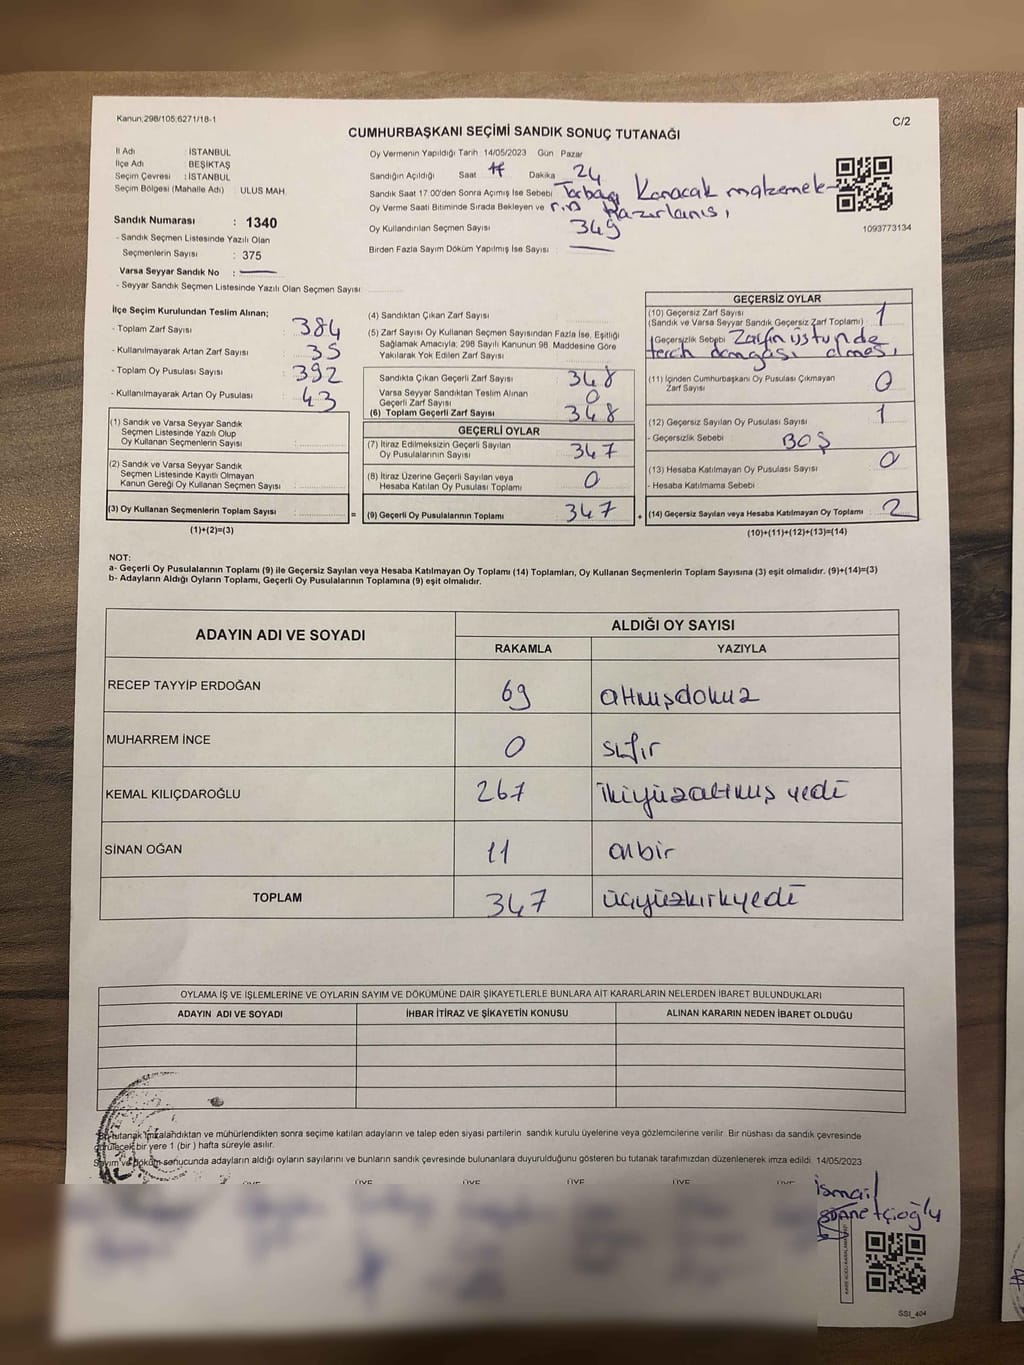 Kanun;298/105;6271/18-1
C/2
CUMHURBAŞKANI SEÇİMİ SANDIK SONUÇ TUTANAĞI
İl Adı : İSTANBUL
İlçe Adı : BEŞİKTAŞ
Seçim Çevresi : İSTANBUL
Seçim Bölgesi (Mahalle Adı) : ULUS MAH.
Oy Vermenin Yapıldığı Tarih 14/05/2023 Gün Pazar
Sandığın Açıldığı Saat Dakika 24
Sandık Saat 17.00'den Sonra Açımış İse Sebebi Torbaya Konacak malzemele-
Oy Verme Saati Bitiminde Sırada Bekleyen ve rin Hazırlanışı
Oy Kullandırılan Seçmen Sayısı 349
Birden Fazla Sayım Döküm Yapılmış İse Sayısı
1093773134
Sandık Numarası : 1340
- Sandık Seçmen Listesinde Yazılı Olan
Seçmenlerin Sayısı : 375
Varsa Seyyar Sandık No :
- Seyyar Sandık Seçmen Listesinde Yazılı Olan Seçmen Sayısı
İlçe Seçim Kurulundan Teslim Alınan;
- Toplam Zarf Sayısı : 384
- Kullanılmayarak Artan Zarf Sayısı : 35
- Toplam Oy Pusulası Sayısı : 392
- Kullanılmayarak Artan Oy Pusulası : 43
(1) Sandık ve Varsa Seyyar Sandık
Seçmen Listesinde Yazılı Olup
Oy Kullanan Seçmenlerin Sayısı
(2) Sandık ve Varsa Seyyar Sandık
Seçmen Listesinde Kayıtlı Olmayan
Kanun Gereği Oy Kullanan Seçmen Sayısı
(3) Oy Kullanan Seçmenlerin Toplam Sayısı
(1)+(2)=(3)
(4) Sandıktan Çıkan Zarf Sayısı
(5) Zarf Sayısı Oy Kullanan Seçmen Sayısından Fazla İse, Eşitliği
Sağlamak Amacıyla; 298 Sayılı Kanunun 98. Maddesine Göre
Yakılarak Yok Edilen Zarf Sayısı
Sandıkta Çıkan Geçerli Zarf Sayısı 348
Varsa Seyyar Sandıktan Teslim Alınan
Geçerli Zarf Sayısı 0
(6) Toplam Geçerli Zarf Sayısı 348
GEÇERLİ OYLAR
(7) İtiraz Edilmeksizin Geçerli Sayılan
Oy Pusulalarının Sayısı 347
(8) İtiraz Üzerine Geçerli Sayılan veya
Hesaba Katılan Oy Pusulası Toplamı 0
= (9) Geçerli Oy Pusulalarının Toplamı 347 +
GEÇERSİZ OYLAR
(10) Geçersiz Zarf Sayısı
(Sandık ve Varsa Seyyar Sandık Geçersiz Zarf Toplamı) 1
Geçersizlik Sebebi Zarfın üstünde
terch damgası olması
(11) İçinden Cumhurbaşkanı Oy Pusulası Çıkmayan
Zarf Sayısı 0
(12) Geçersiz Sayılan Oy Pusulası Sayısı 1
- Geçersizlik Sebebi BOŞ
(13) Hesaba Katılmayan Oy Pusulası Sayısı 0
- Hesaba Katılmama Sebebi
(14) Geçersiz Sayılan veya Hesaba Katılmayan Oy Toplamı 2
(10)+(11)+(12)+(13)=(14)
NOT:
a- Geçerli Oy Pusulalarının Toplamı (9) ile Geçersiz Sayılan veya Hesaba Katılmayan Oy Toplamı (14) Toplamları, Oy Kullanan Seçmenlerin Toplam Sayısına (3) eşit olmalıdır. (9)+(14)=(3)
b- Adayların Aldığı Oyların Toplamı, Geçerli Oy Pusulalarının Toplamına (9) eşit olmalıdır.
ADAYIN ADI VE SOYADI ALDIĞI OY SAYISI
RAKAMLA YAZIYLA
RECEP TAYYİP ERDOĞAN 69 altmışdokuz
MUHARREM İNCE 0 sıfır
KEMAL KILIÇDAROĞLU 267 ikiyüzaltmış yedi
SİNAN OĞAN 11 onbir
TOPLAM 347 üçyüzkırkyedi
OYLAMA İŞ VE İŞLEMLERİNE VE OYLARIN SAYIM VE DÖKÜMÜNE DAİR ŞİKAYETLERLE BUNLARA AİT KARARLARIN NELERDEN İBARET BULUNDUKLARI
ADAYIN ADI VE SOYADI İHBAR İTİRAZ VE ŞİKAYETİN KONUSU ALINAN KARARIN NEDEN İBARET OLDUĞU
tutanak imzalandıktan ve mühürlendikten sonra seçime katılan adayların ve talep eden siyasi partilerin sandık kurulu üyelerine veya gözlemcilerine verilir. Bir nüshası da sandık çevresinde
görülecek bir yere 1 (bir ) hafta süreyle asılır.
Sayım ve döküm sonucunda adayların aldığı oyların sayılarını ve bunların sandık çevresinde bulunanlara duyurulduğunu gösteren bu tutanak tarafımızdan düzenlenerek imza edildi. 14/05/2023
ÜYE ÜYE ÜYE ÜYE ÜYE ÜYE
İsmail
SSI_404